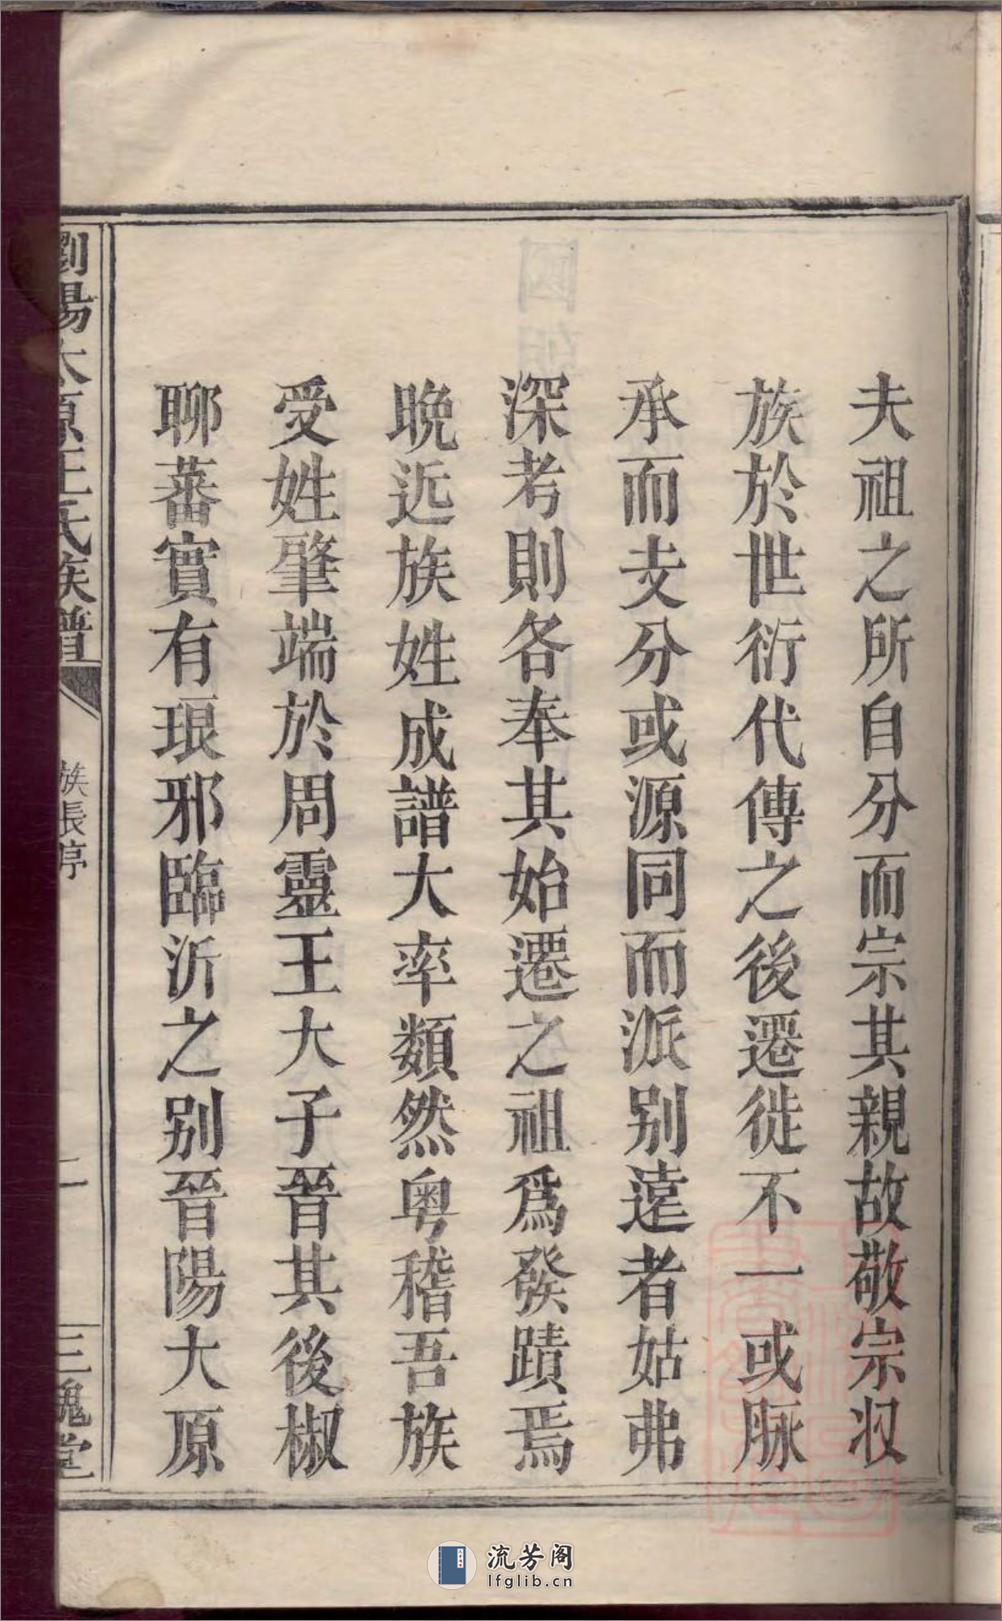 夫祖之所自分而宗其親故敬宗收
族於世衍代傳之後遷徙不一或脉
承而支分或源同而派别遠者姑弗
深考則各奉其始遷之祖爲發蹟焉
晚近族姓成譜大率類然粤稽吾族
受姓肇端於周靈王大子晉其後椒
聊蕃實有琅邪臨沂之别晉陽大原
瀏陽太原王氏族譜
族長序
二
三槐堂
流芳阁
lfglib.cn